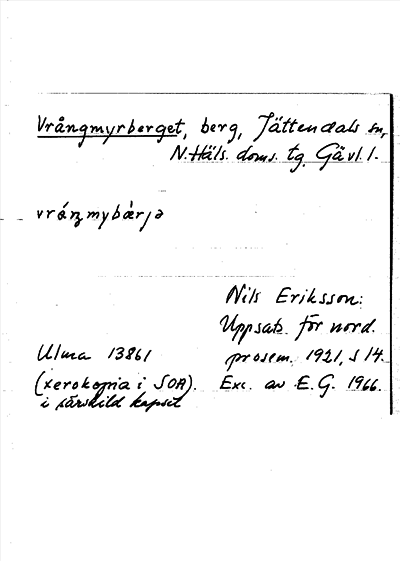 Vrångmyrberget, berg, Jättendals sn,
N. Häls. doms. tg. Gävl. l.
vráŋmybærja
Nils Eriksson:
Uppsats för nord.
prosem. 1921, s 14.
Exc. av E.G. 1966.
Ulma 13861
(xerokopia i SOA).
i särskild kapsel